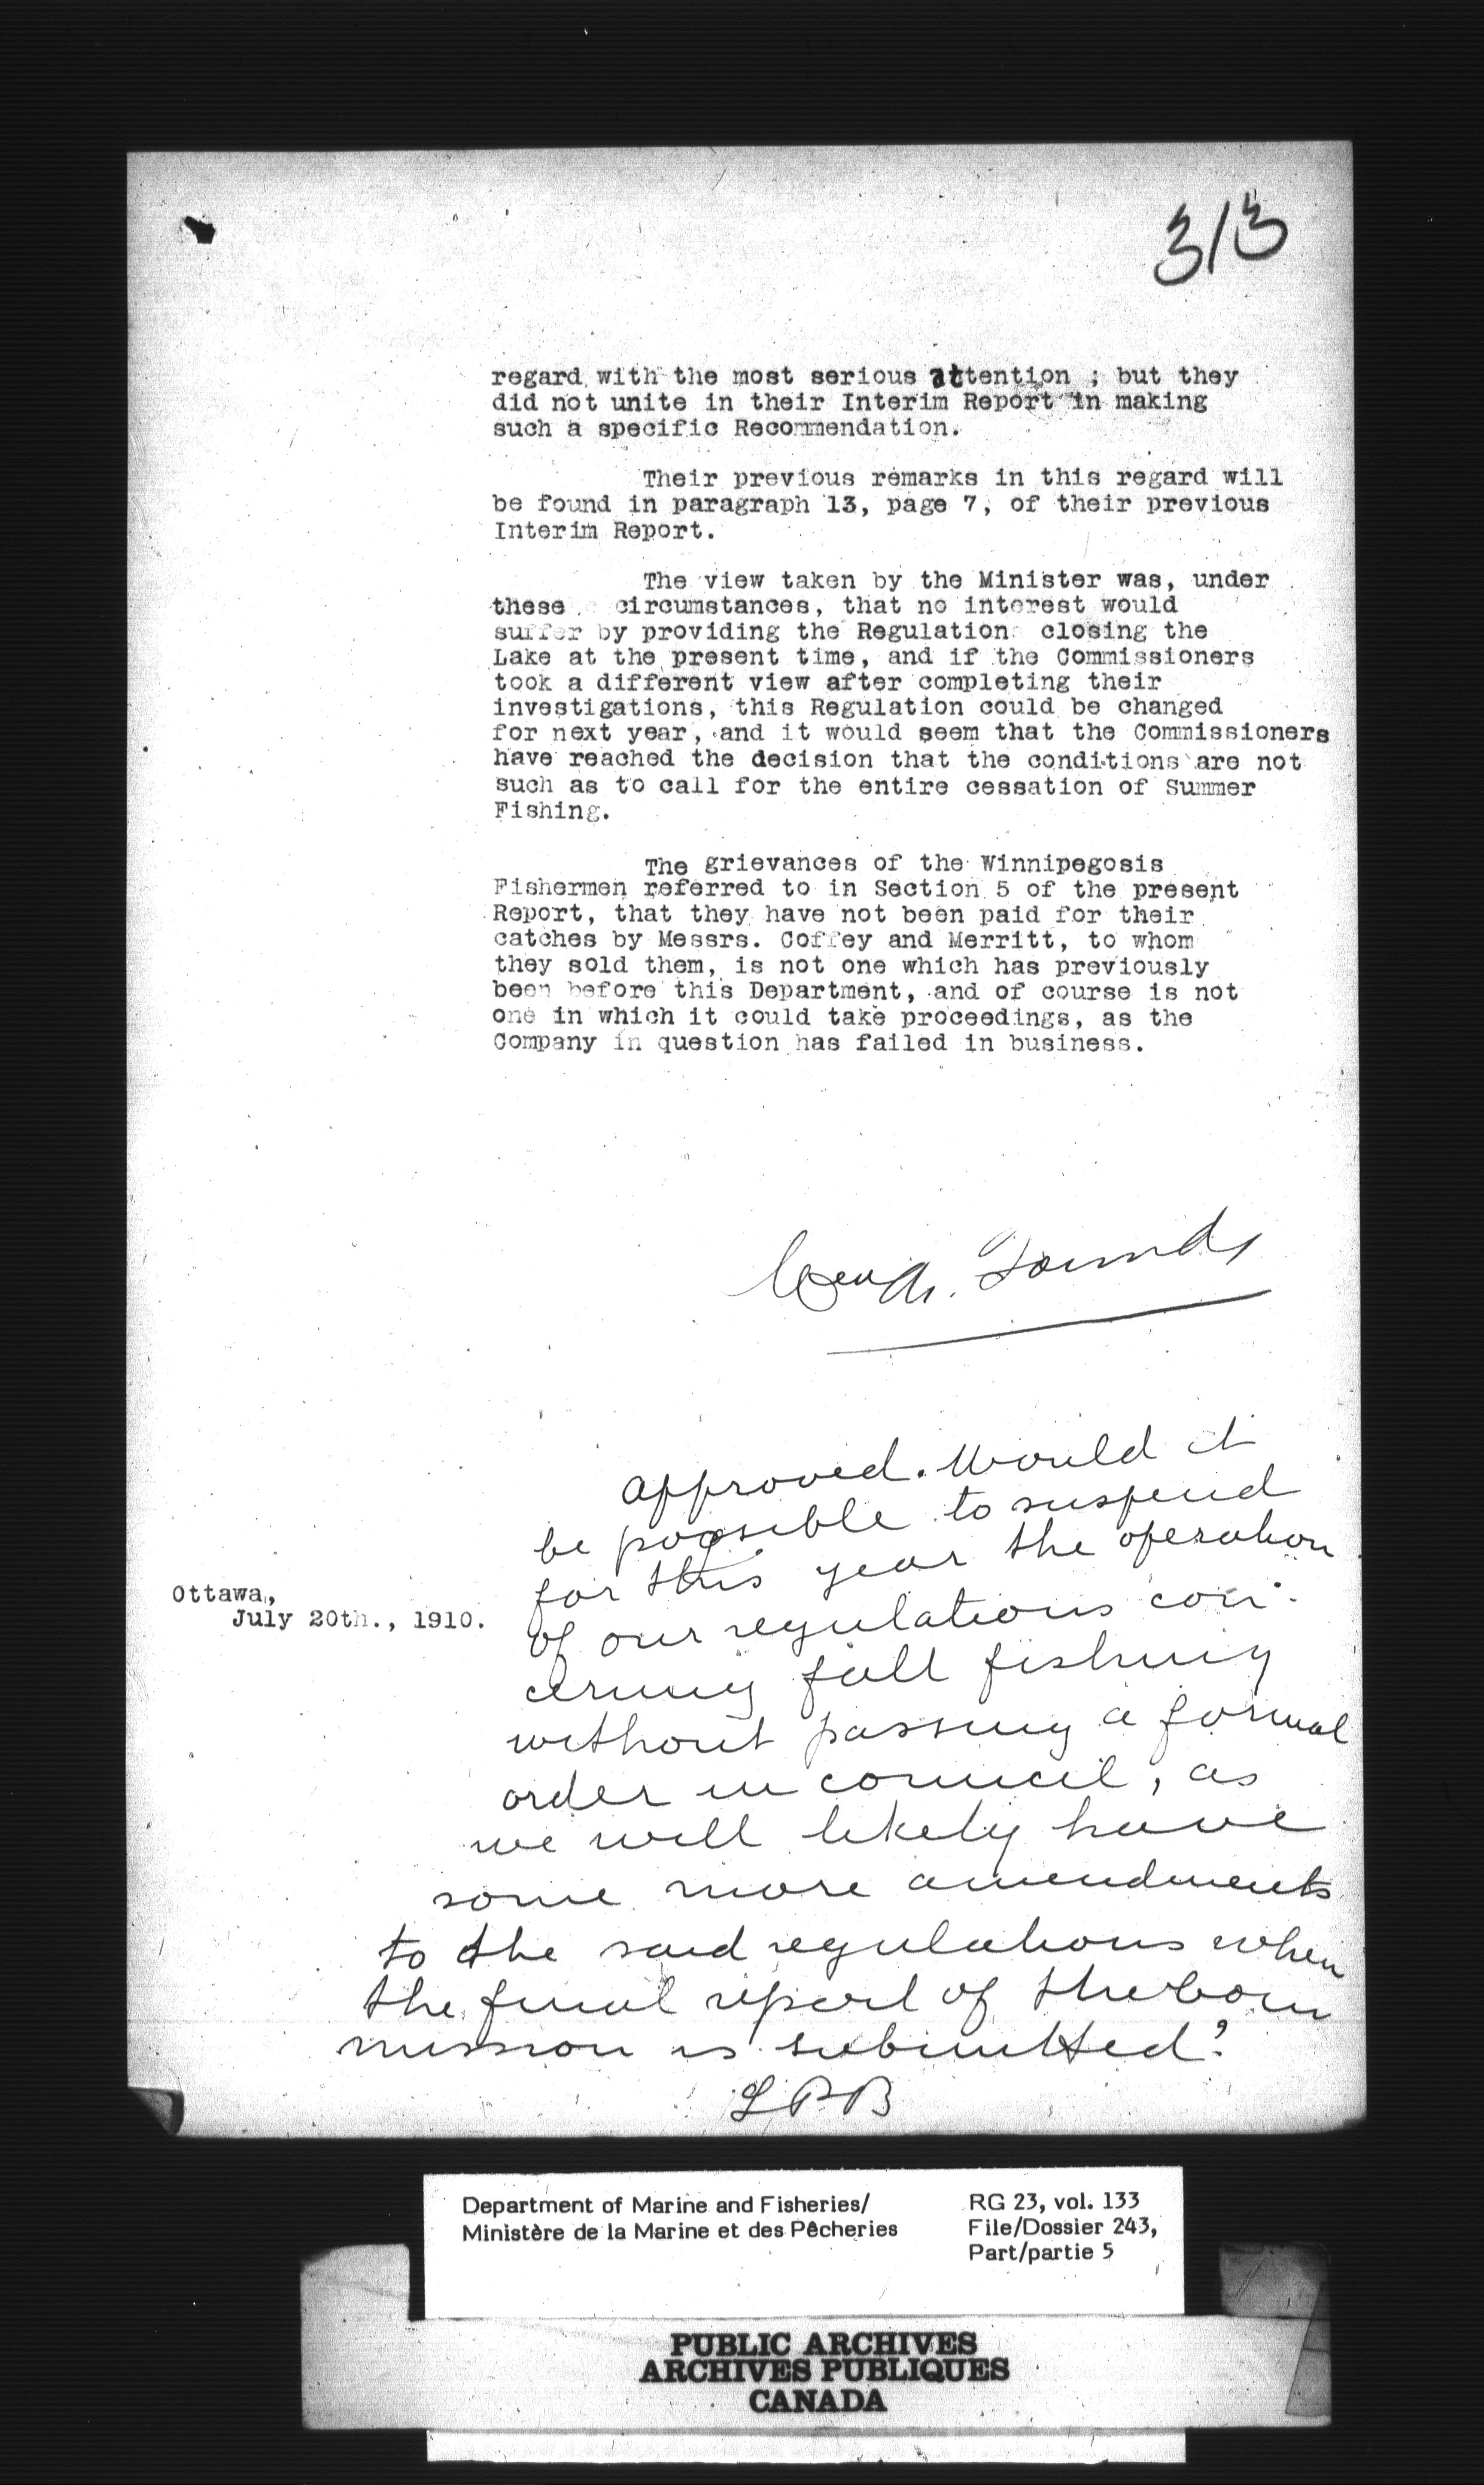 313
regard with the most serious attention ; but they
did not unite in their Interim Report in making
such a specific Recommendation.
Their previous remarks in this regard will
be found in paragraph 13, page 7, of their previous
Interim Report.
The view taken by the Minister was, under
these circumstances, that no interest would
suffer by providing the Regulation closing the
Lake at the present time, and if the Commissioners
took a different view after completing their
investigations, this Regulation could be changed
for next year, and it would seem that the Commissioners
have reached the decision that the conditions are not
such as to call for the entire cessation of Summer
Fishing.
The grievances of the Winnipegosis
Fishermen referred to in Section 5 of the present
Report, that they have not been paid for their
catches by Messrs. Coffey and Merritt, to whom
they sold them, is not one which has previously
been before this Department, and of course is not
one in which it could take proceedings, as the
Company in question has failed in business.
approved. Would it
be possible to suspend
for this year the operation
Ottawa,
July 20th., 1910.
of our regulations con-
cerning fall fishing
without passing a formal
order in council, as
we will likely have
some more amendments
to the said regulations when
the final report of the Com
mission is submitted?
LPB
Department of Marine and Fisheries/
Ministère de la Marine et des Pêcheries
RG 23, vol. 133
File/Dossier 243,
Part/partie 5
PUBLIC ARCHIVES
ARCHIVES PUBLIQUES
CANADA